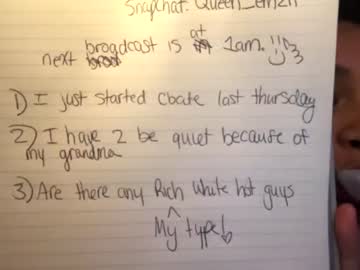 Snapchat: Queen_
next brogdcast is at 1am.
1) I just started cbate last thursday
2) I have 2 be quiet because of
my grandma
3) Are there any Rich white hot guys
^
My type